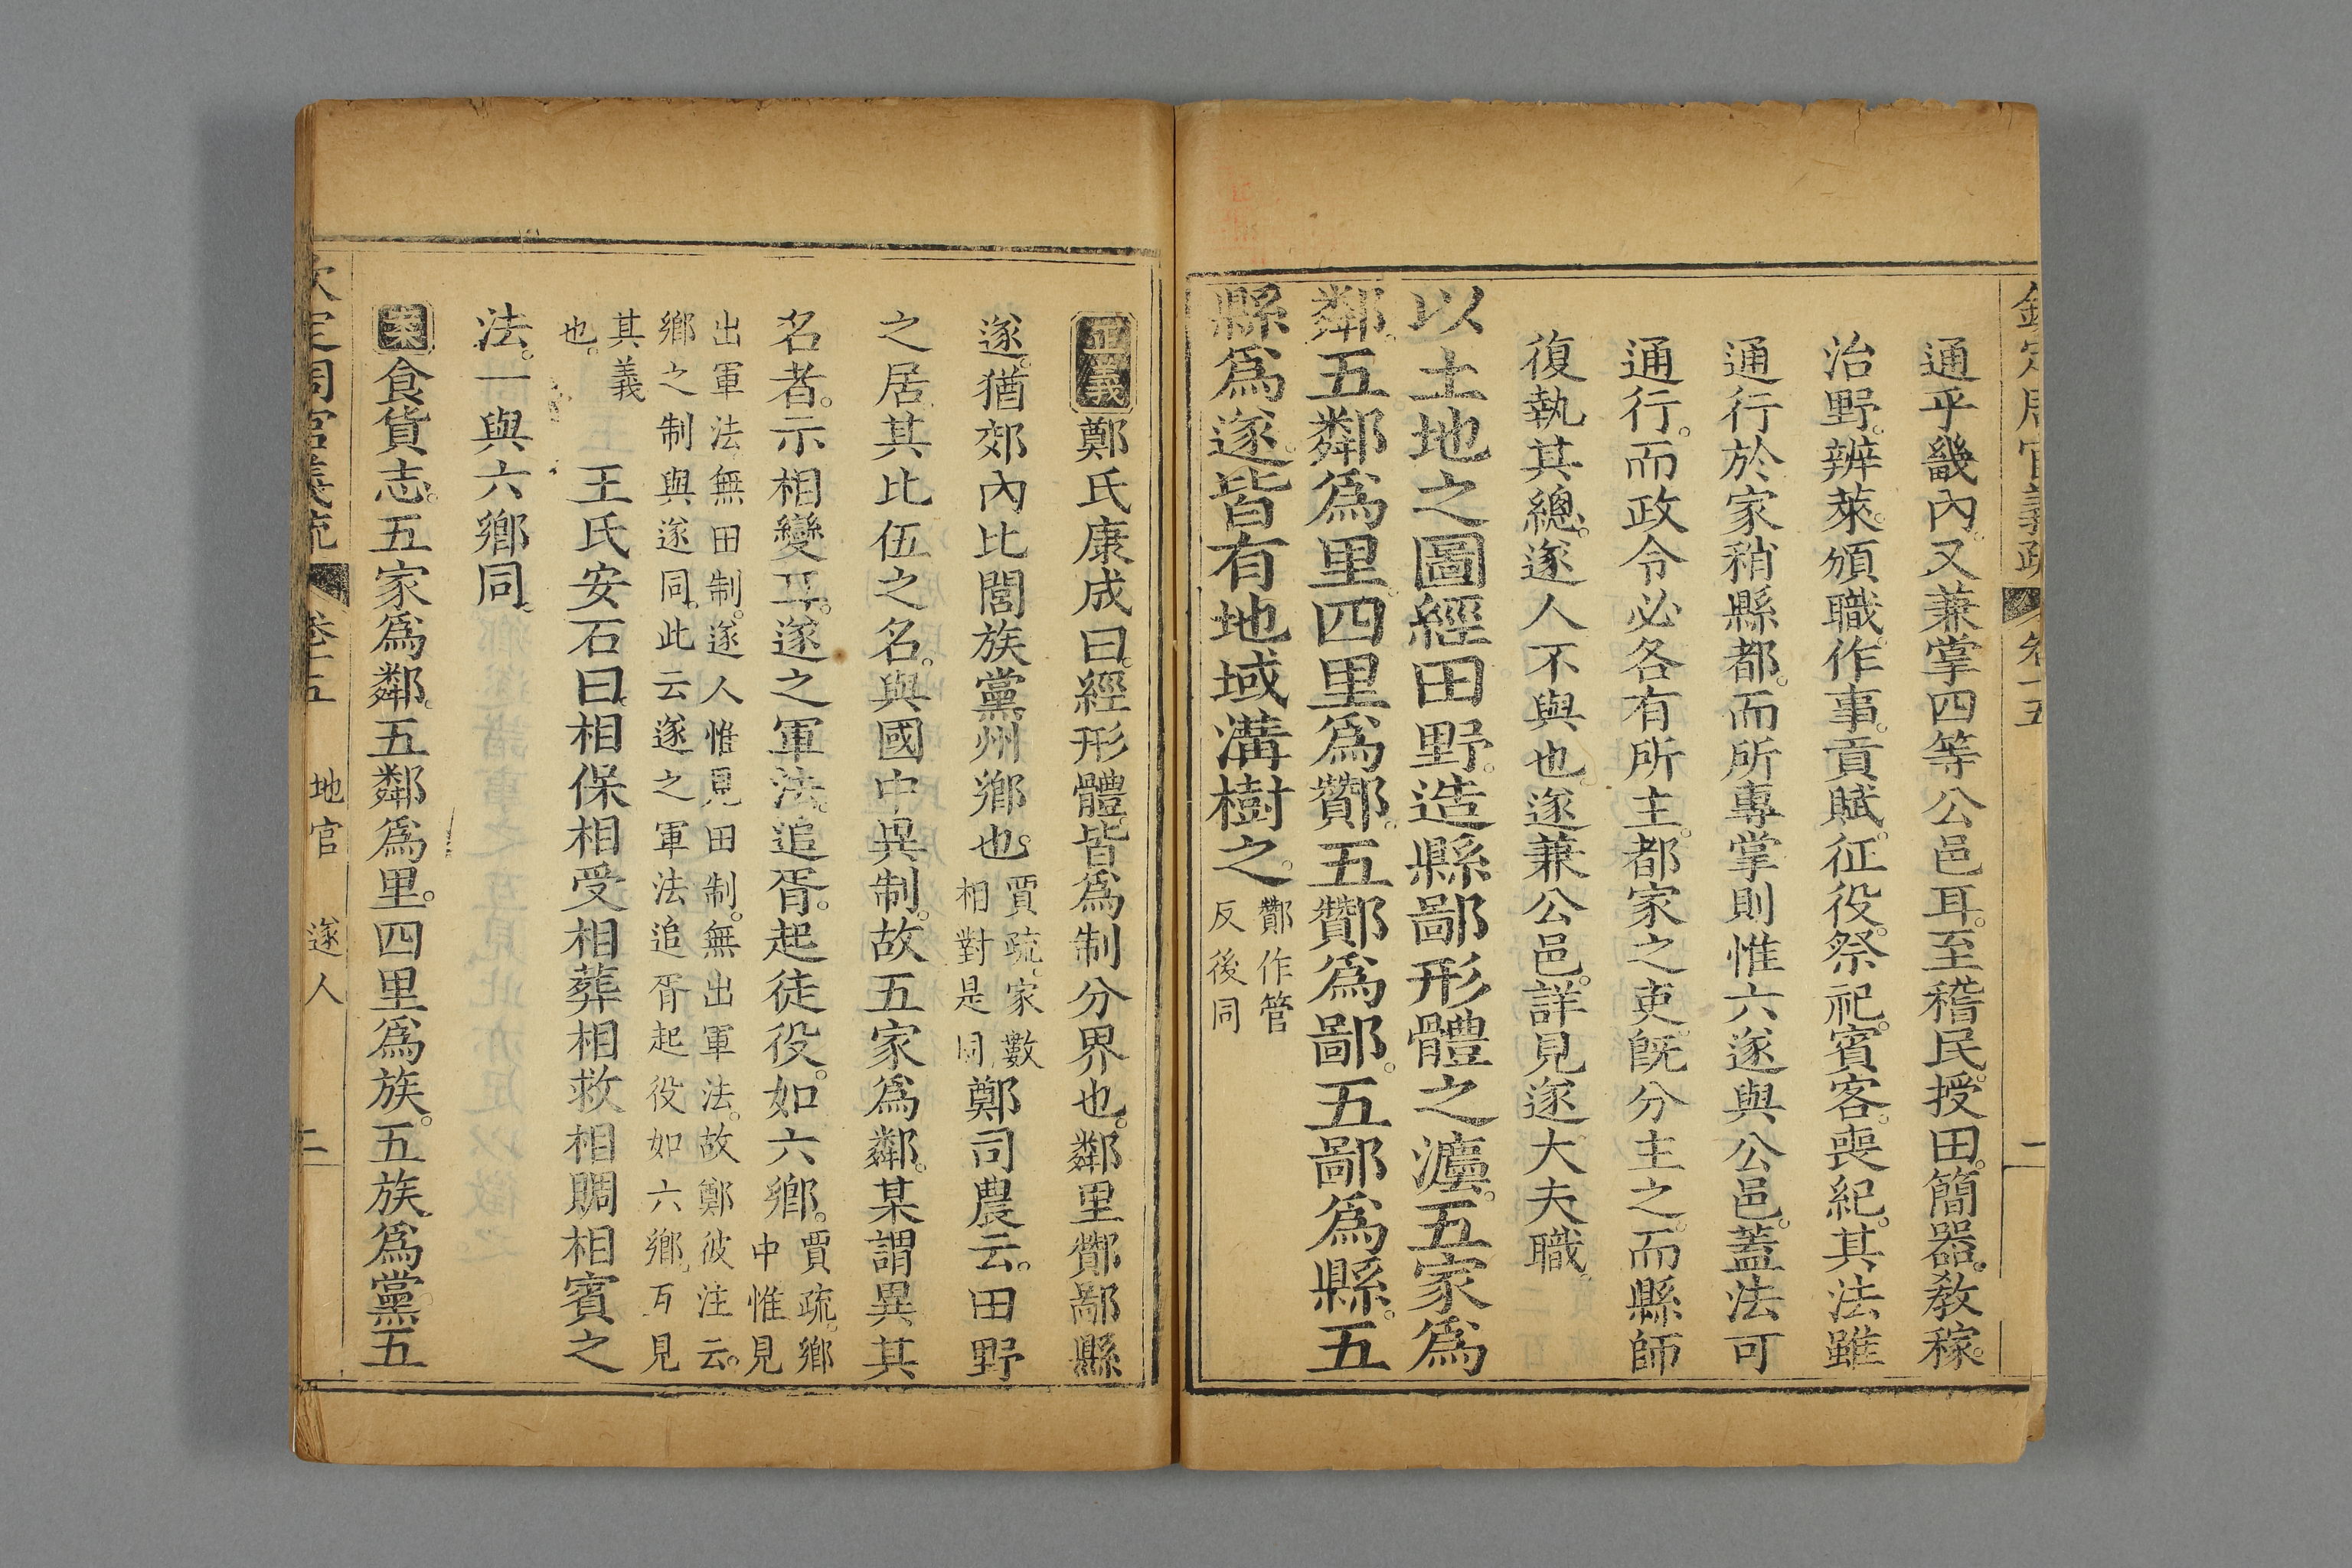 欽定周官義疏 卷十五 一
通乎畿內。又兼掌四等公邑耳。至稽民。授田。簡器。敎稼。
治野。辨萊。頒職。作事。貢賦。征役。祭祀。賓客。喪紀。其法雖
通行於家稍縣都。而所專掌則惟六遂與公邑。蓋法可
通行。而政令必各有所主。都家之吏。旣分主之。而縣師
復執其總。遂人不與也。遂兼公邑。詳見遂大夫職。
以土地之圖經田野。造縣鄙形體之灋。五家爲
鄰。五鄰爲里。四里爲酇。五酇爲鄙。五鄙爲縣。五
縣爲遂。皆有地域溝樹之。
酇作管
反後同
正義鄭氏康成曰。經形體。皆爲制分界也。鄰里酇鄙縣
遂。猶郊內比閭族黨州鄉也。
賈疏。家數
相對是同。
鄭司農云。田野
之居其比伍之名。與國中異制。故五家爲鄰。某謂異其
名者。示相變耳。遂之軍法。追胥。起徒役。如六鄉。
賈疏。鄉
中惟見
出軍法。無田制。遂人惟見田制。無出軍法。故鄭彼注云。
鄉之制與遂同。此云遂之軍法追胥起役如六鄉。互見
其義
也。
王氏安石曰。相保相受相葬相救相賙相賓之
法。一與六鄉同。
案食貨志。五家爲鄰。五鄰爲里。四里爲族。五族爲黨五
欽定周官義疏 卷十五 地官 遂人 二